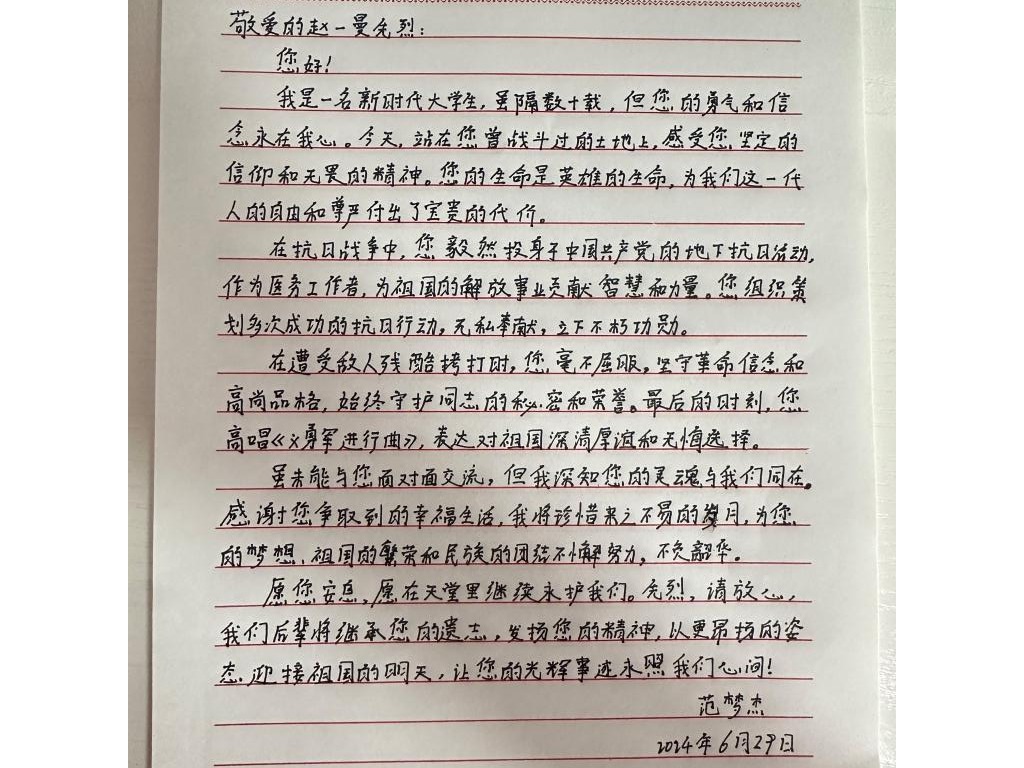 敬爱的赵一曼先烈：
您好！
我是一名新时代大学生，虽隔数十载，但您的勇气和信
念永在我心。今天，站在您曾战斗过的土地上，感受您坚定的
信仰和无畏的精神。您的生命是英雄的生命，为我们这一代
人的自由和尊严付出了宝贵的代价。
在抗日战争中，您毅然投身于中国共产党的地下抗日活动，
作为医务工作者，为祖国的解放事业贡献智慧和力量。您组织策
划多次成功的抗日行动，无私奉献，立下不朽功勋。
在遭受敌人残酷拷打时，您毫不屈服。坚守革命信念和
高尚品格，始终守护同志的秘密和荣誉。最后的时刻，您
高唱《义勇军进行曲》，表达对祖国深清厚谊和无悔选择。
虽未能与您面对面交流，但我深知您的灵魂与我们同在。
感谢您争取到的幸福生活，我将珍惜来之不易的岁月，为您
的梦想、祖国的繁荣和民族的团结不懈努力，不负韶华。
愿您安息，愿在天堂里继续永护我们。先烈，请放心，
我们后辈将继承您的遗志，发扬您的精神，以更昂扬的姿
态迎接祖国的明天，让您的光辉事迹永照我们心间！
范梦杰
2024年6月29日